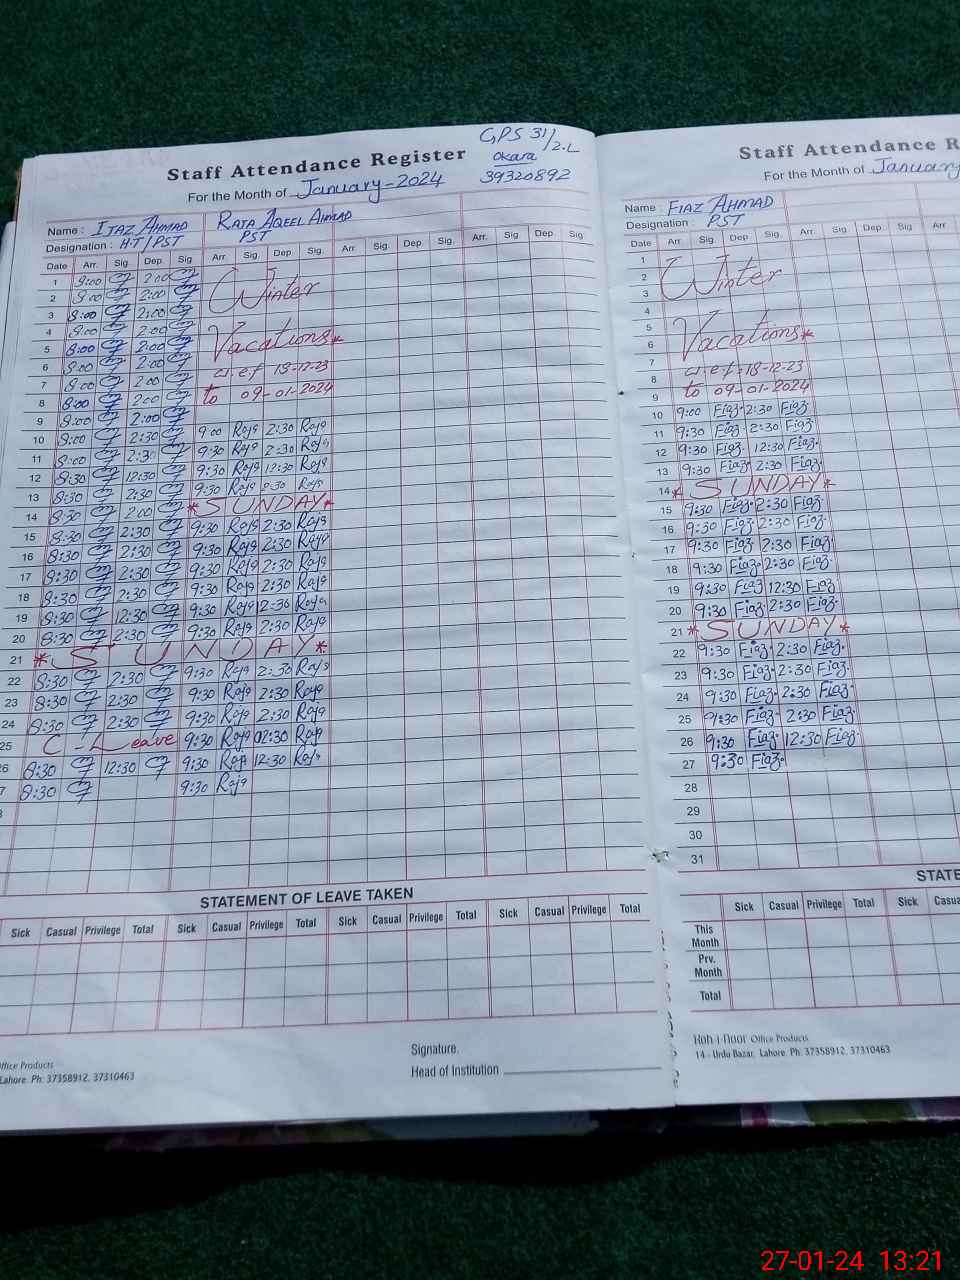 GPS 31/2.L
Okara
39320892
Staff Attendance Register
For the Month of January-2024
Name : IJAZ AHMAD RAJA AQEEL AHMAD
Designation : H.T/PST PST
Date Arr. Sig. Dep. Sig Arr. Sig. Dep. Sig. Arr. Sig. Dep. Sig. Arr. Sig Dep. Sig
1 9:00 2:00
2 9:00 2:00
3 8:00 2:00
4 8:00 2:00
5 8:00 2:00
6 8:00 2:00
7 8:00 2:00
8 8:00 2:00
Winter
Vacations*
w.e.f 18-12-23
to 09-01-2024
9 9:00 2:00
10 9:00 2:30 9:00 Raja 2:30 Raja
11 8:00 2:30 9:30 Raja 2:30 Raja
12 8:30 12:30 9:30 Raja 12:30 Raja
13 8:30 2:30 9:30 Raja 2:30 Raja
14 8:30 2:00 *SUNDAY*
15 8:30 2:30 9:30 Raja 2:30 Raja
16 8:30 2:30 9:30 Raja 2:30 Raja
17 8:30 2:30 9:30 Raja 2:30 Raja
18 8:30 2:30 9:30 Raja 2:30 Raja
19 8:30 12:30 9:30 Raja 12:30 Raja
20 8:30 2:30 9:30 Raja 2:30 Raja
21 * SUNDAY *
22 8:30 2:30 9:30 Raja 2:30 Raja
23 8:30 2:30 9:30 Raja 2:30 Raja
24 8:30 2:30 9:30 Raja 2:30 Raja
25 C-Leave 9:30 Raja 02:30 Raja
26 8:30 12:30 9:30 Raja 12:30 Raja
7 8:30 9:30 Raja
STATEMENT OF LEAVE TAKEN
Sick Casual Privilege Total Sick Casual Privilege Total Sick Casual Privilege Total Sick Casual Privilege Total
Signature.
Head of Institution
Office Products
Lahore. Ph: 37358912, 37310463
Staff Attendance R
For the Month of January
Name : FIAZ AHMAD
Designation : PST
Date Arr. Sig. Dep. Sig. Arr. Sig. Dep. Sig Arr.
1
2
3
4
5
6
7
8
9
Winter
Vacations*
w.e.f 18-12-23
to 09-01-2024
10 9:00 Fiaz 2:30 Fiaz
11 9:30 Fiaz 2:30 Fiaz
12 9:30 Fiaz 12:30 Fiaz
13 9:30 Fiaz 2:30 Fiaz
14 * SUNDAY *
15 9:30 Fiaz 2:30 Fiaz
16 9:30 Fiaz 2:30 Fiaz
17 9:30 Fiaz 2:30 Fiaz
18 9:30 Fiaz 2:30 Fiaz
19 9:30 Fiaz 12:30 Fiaz
20 9:30 Fiaz 2:30 Fiaz
21 * SUNDAY *
22 9:30 Fiaz 2:30 Fiaz
23 9:30 Fiaz 2:30 Fiaz
24 9:30 Fiaz 2:30 Fiaz
25 9:30 Fiaz 2:30 Fiaz
26 9:30 Fiaz 12:30 Fiaz
27 9:30 Fiaz
28
29
30
31
STATE
Sick Casual Privilege Total Sick Casua
This Month
Prv. Month
Total
Koh-i-Noor Office Products
14 - Urdu Bazar, Lahore. Ph: 37358912, 37310463
27-01-24 13:21